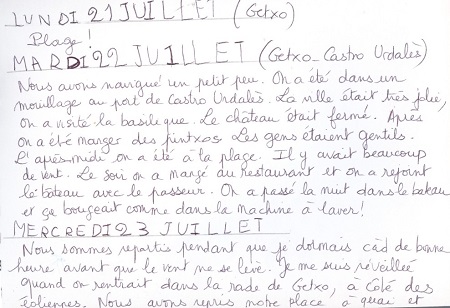 LUNDI 21 JUILLET (Getxo)
Plage !
MARDI 22 JUILLET (Getxo_Castro Urdalès)
Nous avons navigué un petit peu. On a été dans un
mouillage au port de Castro Urdalès. La ville était très jolie,
on a visité la basilique. Le château était fermé. Après
on a été manger des pintxos. Les gens étaient gentils.
L'après-midi on a été à la plage. Il y avait beaucoup
de vent. Le soir on a mangé au restaurant et on a rejoint
le bateau avec le passeur. On a passé la nuit dans le bateau
et ça bougeait comme dans la machine à laver !
MERCREDI 23 JUILLET
Nous sommes repartis pendant que je dormais càd de bonne
heure avant que le vent ne se lève. Je me suis réveillée
quand on rentrait dans la rade de Getxo, à côté des
éoliennes. Nous avons repris notre place à quai et